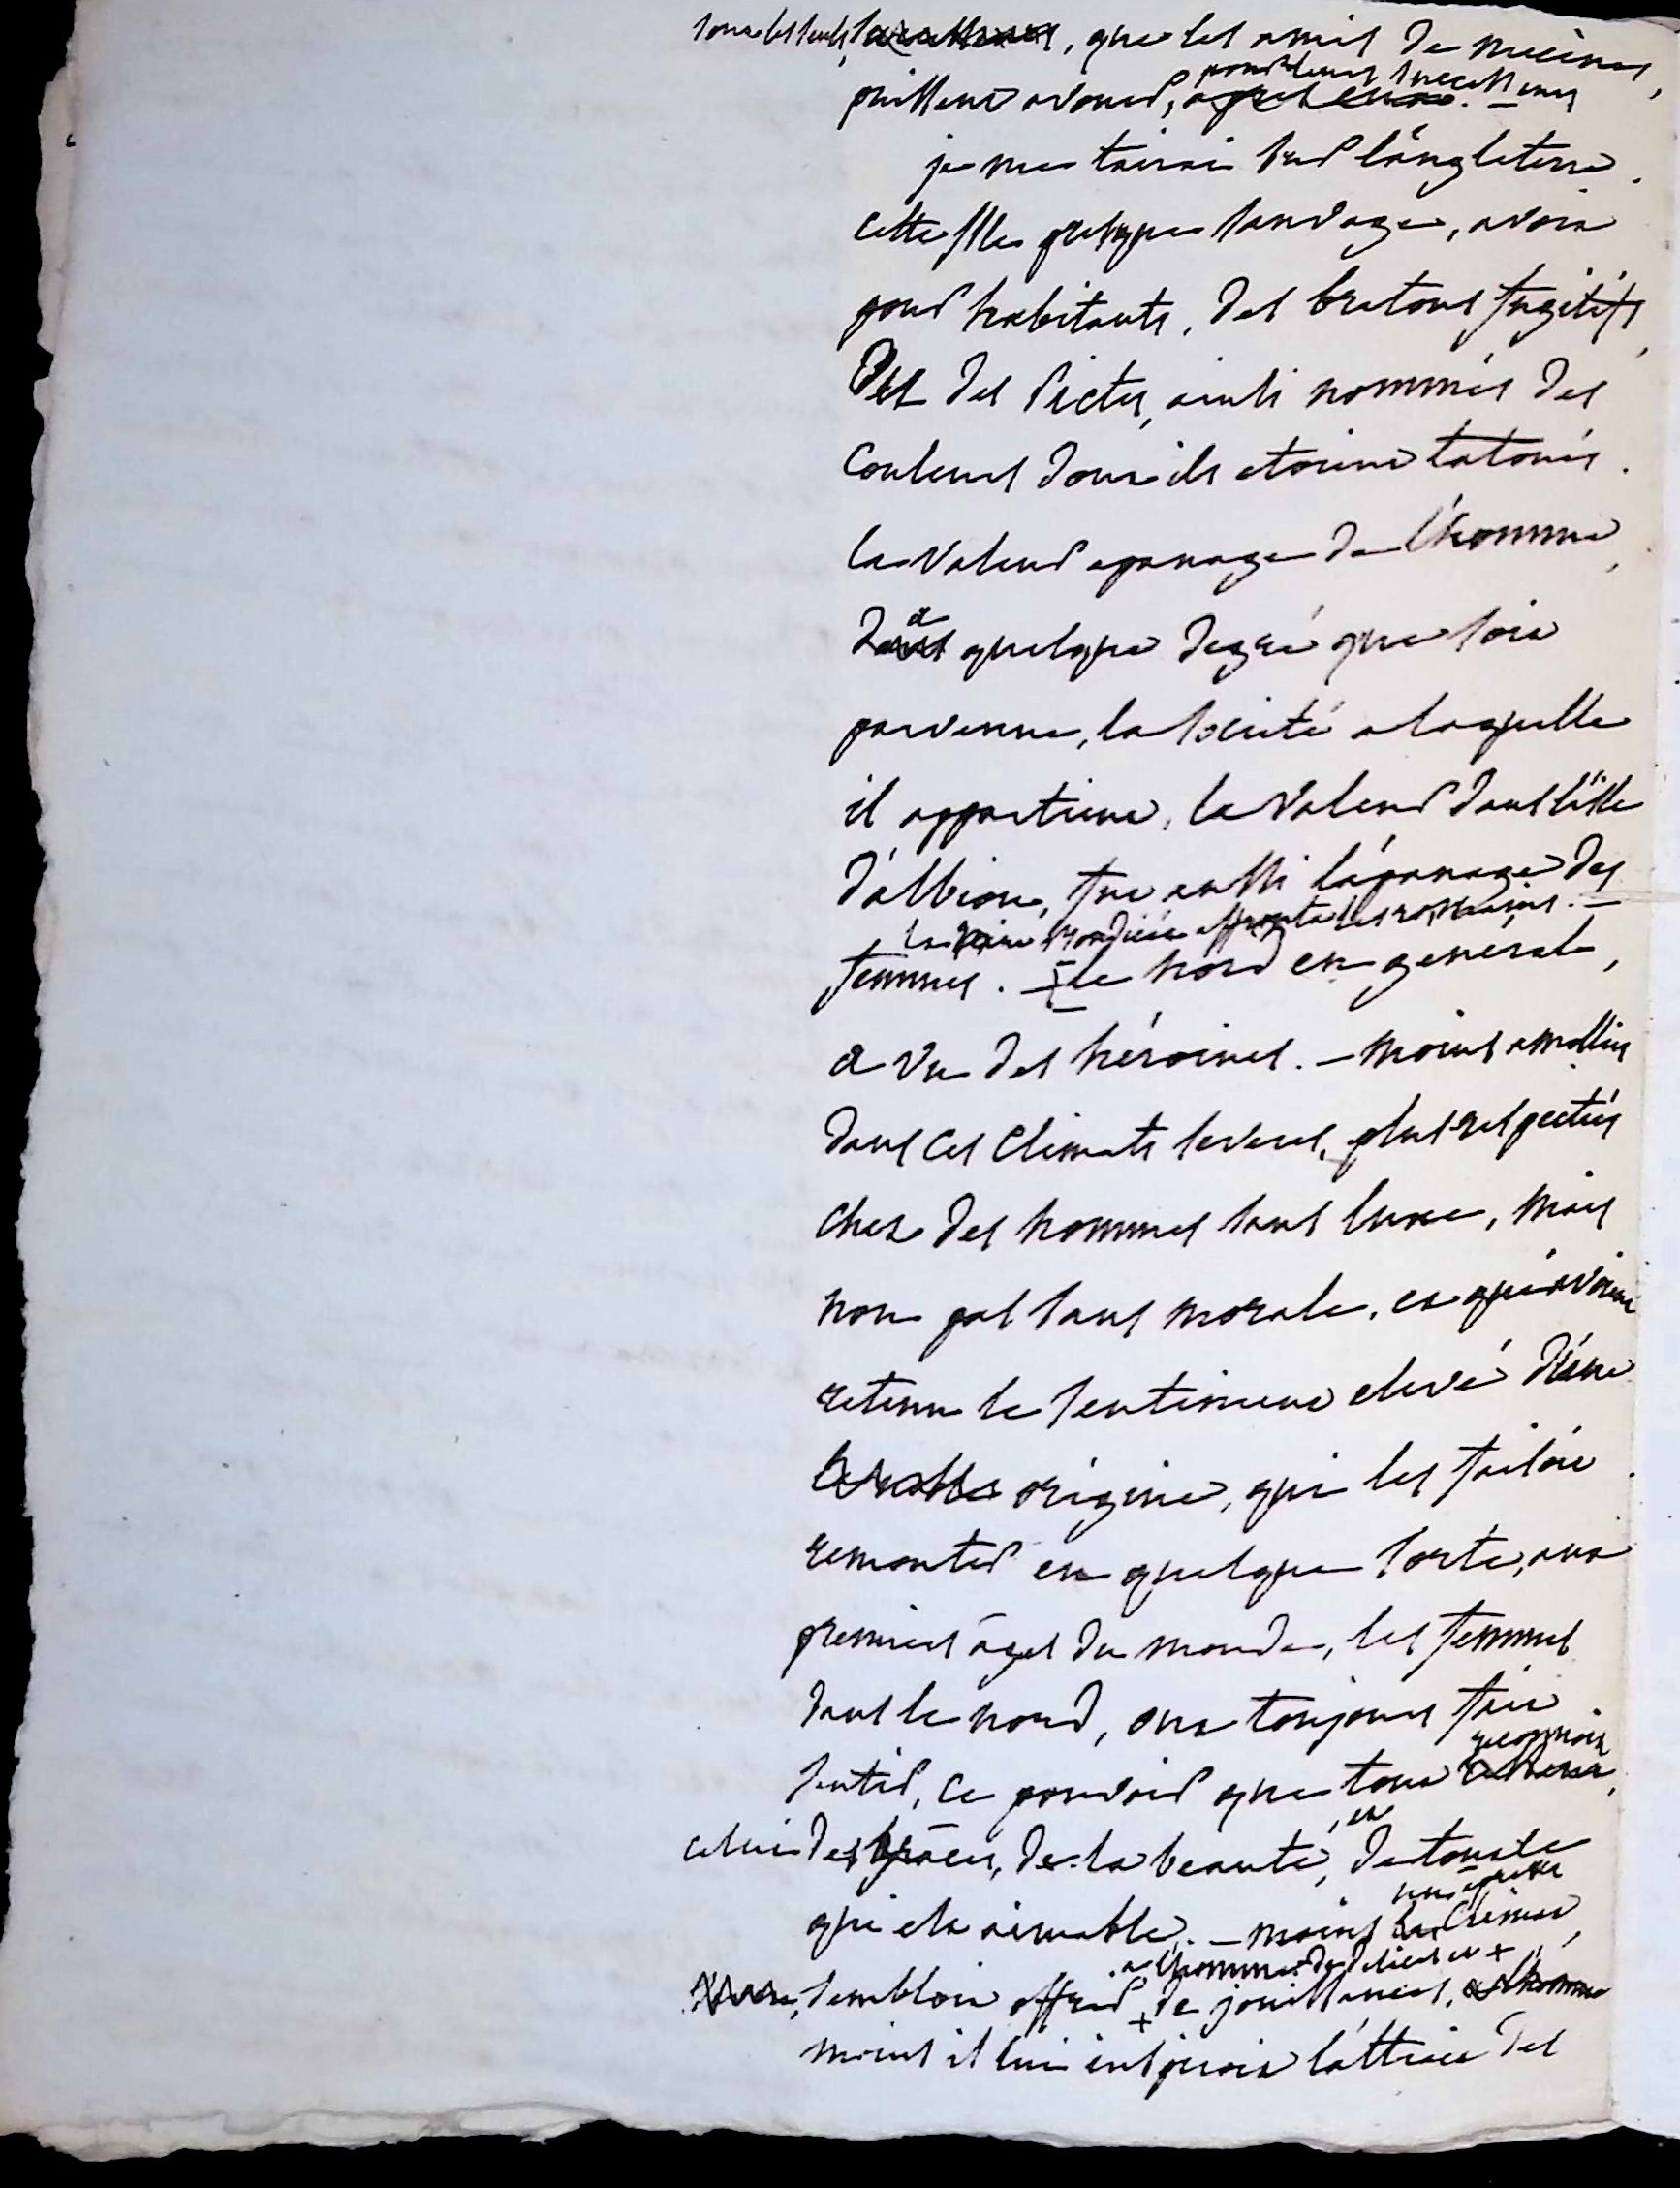 sont les seuls, que les amis de mecenes,
puissent avouer, pour leurs successeurs
je me tairai sur l'angleterre.
cette Isle presque sauvage, avoit
pour habitants, des bretons fugitifs,
et des Pictes, ainsi nommés des
couleurs dont ils etoient tatoués.
la valeur apanage de l'homme,
a quelque degré que soit
parvenue, la société a laquelle
il appartient, la valeur dans l'isle
d'albion, fut aussi l'apanage des
la reine Boadicée affronta les romains. —
femmes. — le nord en general,
a vu des héroines. — moins amollies
dans ces climats severes, plus respectées
chez des hommes sans luxe, mais
non pas sans morale, et qui avoient
retenu le sentiment elevé d'une
origine, qui les faisoit
remonter en quelque sorte, aux
premiers âges du monde, les femmes
dans le nord, ont toujours fait
sentir, ce pouvoir que tout reconnoit,
celui des grâces, de la beauté, et de tout ce
qui est aimable. — moins un apre climat,
sembloit offrir, a l'homme de delices et de jouissances,
moins il lui inspiroit l'attrait des